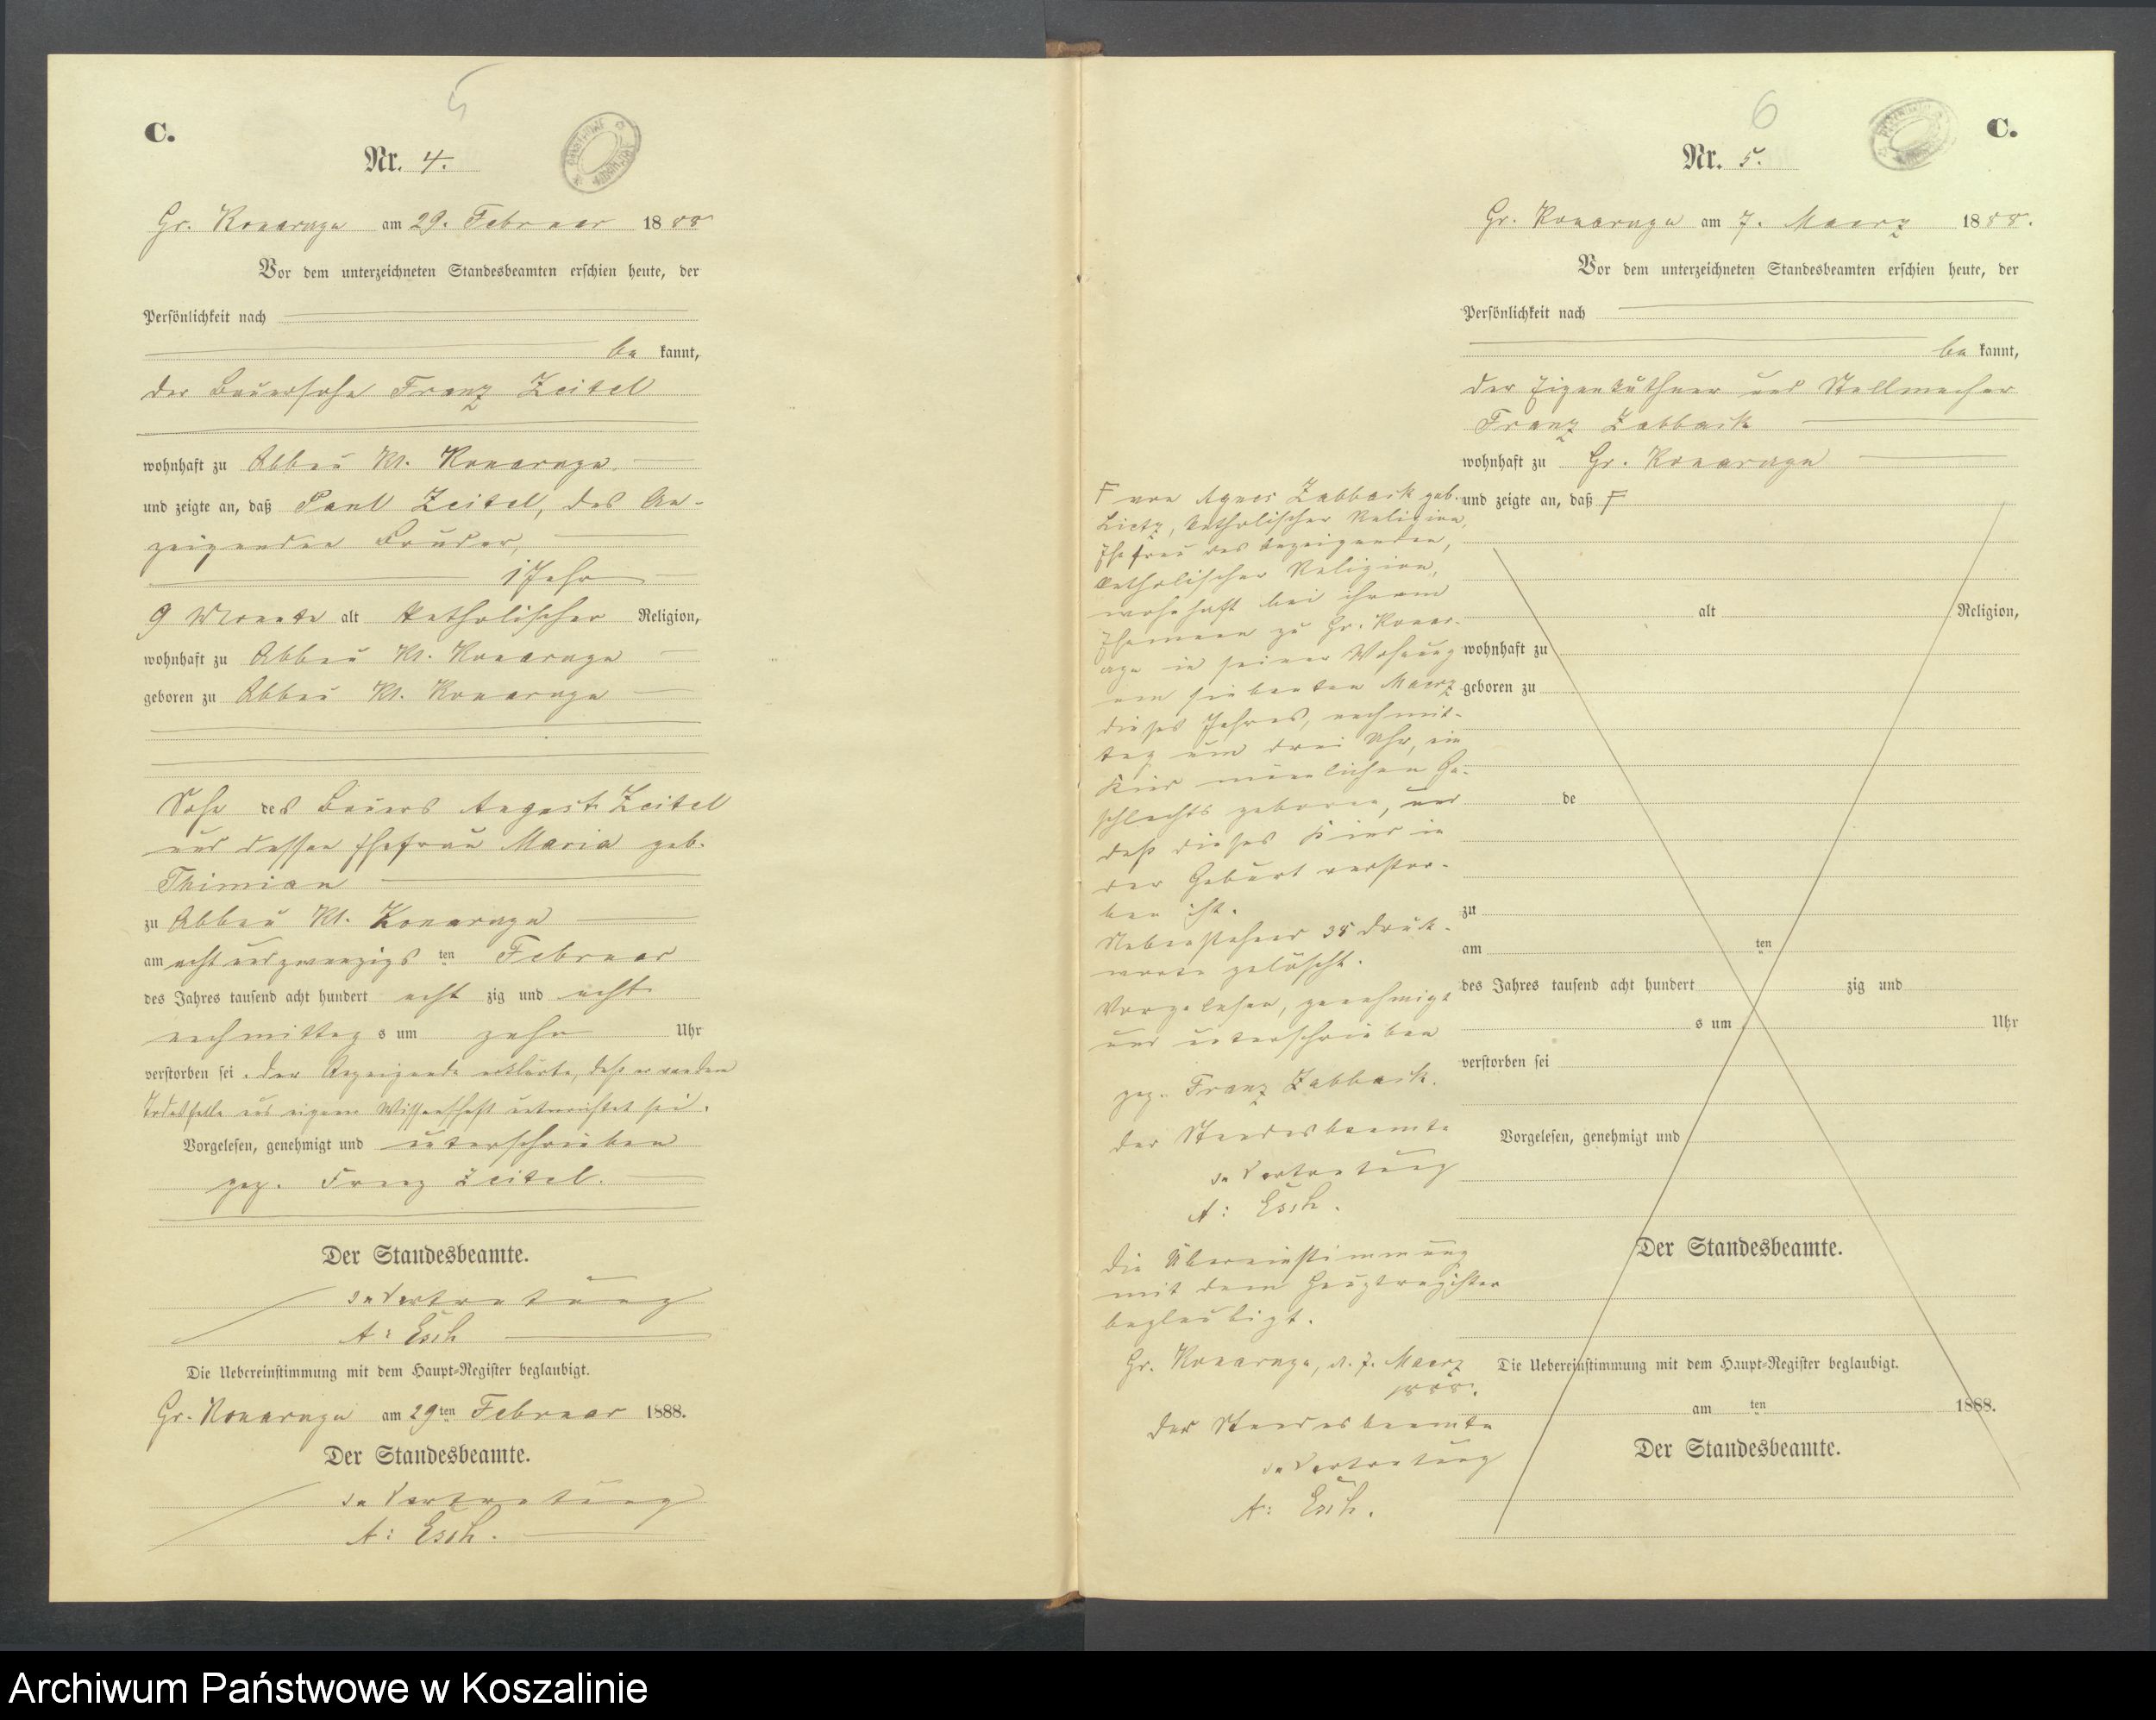 5
C.
Nr. 4.
Gr. Konarzyn am 29. Februar 1888
Vor dem unterzeichneten Standesbeamten erschien heute, der
Persönlichkeit nach
be kannt,
der Bauersohn Franz Zeitel
wohnhaft zu Abbau Kl. Konarzyn.
und zeigte an, daß Paul Zeitel, des An-
zeigenden Bruder,
1 Jahr
9 Monate alt katholischer Religion,
wohnhaft zu Abbau Kl. Konarzyn
geboren zu Abbau Kl. Konarzyn
Sohn des Bauers August Zeitel
und dessen Ehefrau Maria geb.
Thimian
zu Abbau Kl. Konarzyn
am acht und zwanzigs ten Februar
des Jahres tausend acht hundert acht zig und acht
nachmittag s um zehn Uhr
verstorben sei. Der Anzeigende erklärte, daß er von dem
Todesfalle aus eigener Wissenschaft unterrichtet sei.
Vorgelesen, genehmigt und unterschrieben
gez. Franz Zeitel.
Der Standesbeamte.
In Vertretung
A: Esch
Die Uebereinstimmung mit dem Haupt-Register beglaubigt.
Gr. Konarzyn am 29ten Februar 1888.
Der Standesbeamte.
In Vertretung
A: Esch.
6
C.
Nr. 5.
Gr. Konarzyn am 7. Maerz 1888.
Vor dem unterzeichneten Standesbeamten erschien heute, der
Persönlichkeit nach
be kannt,
der Eigenkäthner und Stellmacher
Franz Zabback
wohnhaft zu Gr. Konarzyn
und zeigte an, daß F
alt Religion,
wohnhaft zu
geboren zu
de
zu
am ten
des Jahres tausend acht hundert zig und
s um Uhr
verstorben sei
Vorgelesen, genehmigt und
Der Standesbeamte.
Die Uebereinstimmung mit dem Haupt-Register beglaubigt.
am ten 1888.
Der Standesbeamte.
F von Agnes Zabback geb.
Lietz, katholischer Religion,
Ehefrau des Anzeigenden,
katholischer Religion,
wohnhaft bei ihrem
Ehemann zu Gr. Konar-
zyn in seiner Wohnung
am siebenten Maerz
dieses Jahres, nachmit-
tag um drei Uhr, ein
Kind männlichen Ge-
schlechts geboren, und
daß dieses Kind in
der Geburt verstor-
ben ist.
Nebenstehend 38 Druck-
worte gelöscht.
Vorgelesen, genehmigt
und unterschrieben
gez. Franz Zabback.
Der Standesbeamte
In Vertretung
A: Esch.
Die Übereinstimmung
mit dem Hauptregister
beglaubigt.
Gr. Konarzyn, d. 7. Maerz
1888.
Der Standesbeamte
In Vertretung
A: Esch.
Archiwum Państwowe w Koszalinie